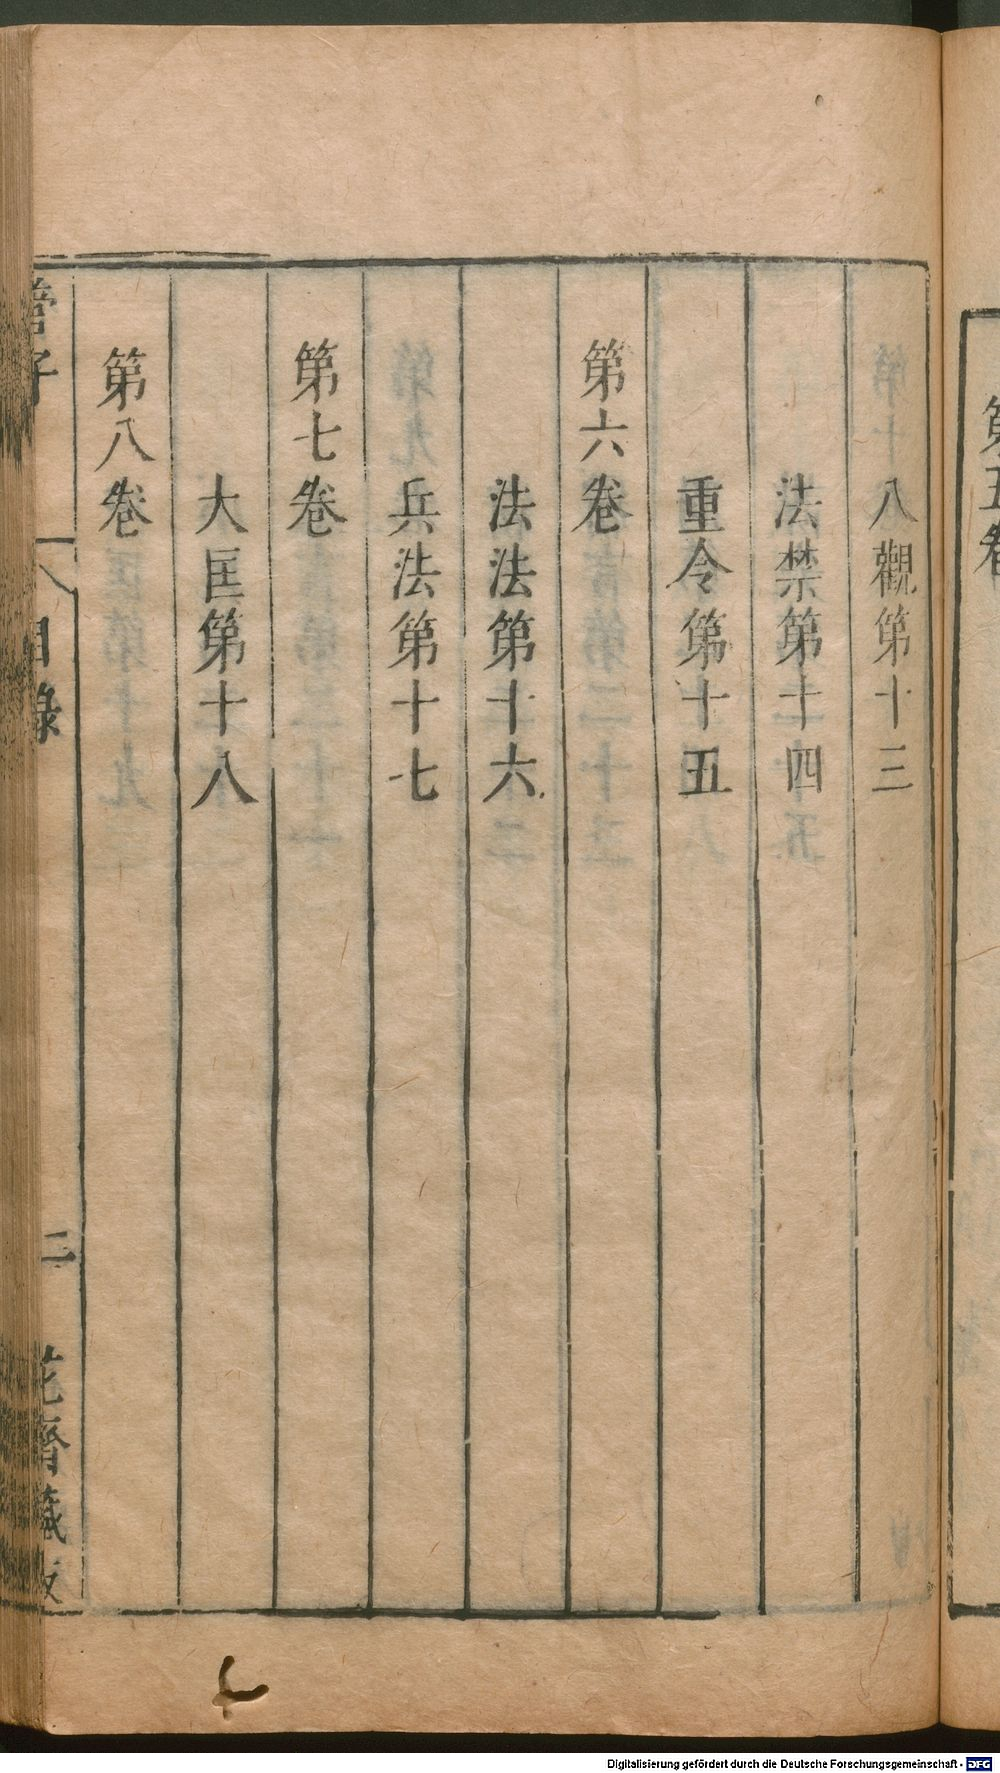 第五卷
八觀第十三
法禁第十四
重令第十五
第六卷
法法第十六
兵法第十七
第七卷
大匡第十八
第八卷
管子
目錄
二
花齋藏板
Digitalisierung gefördert durch die Deutsche Forschungsgemeinschaft - DFG